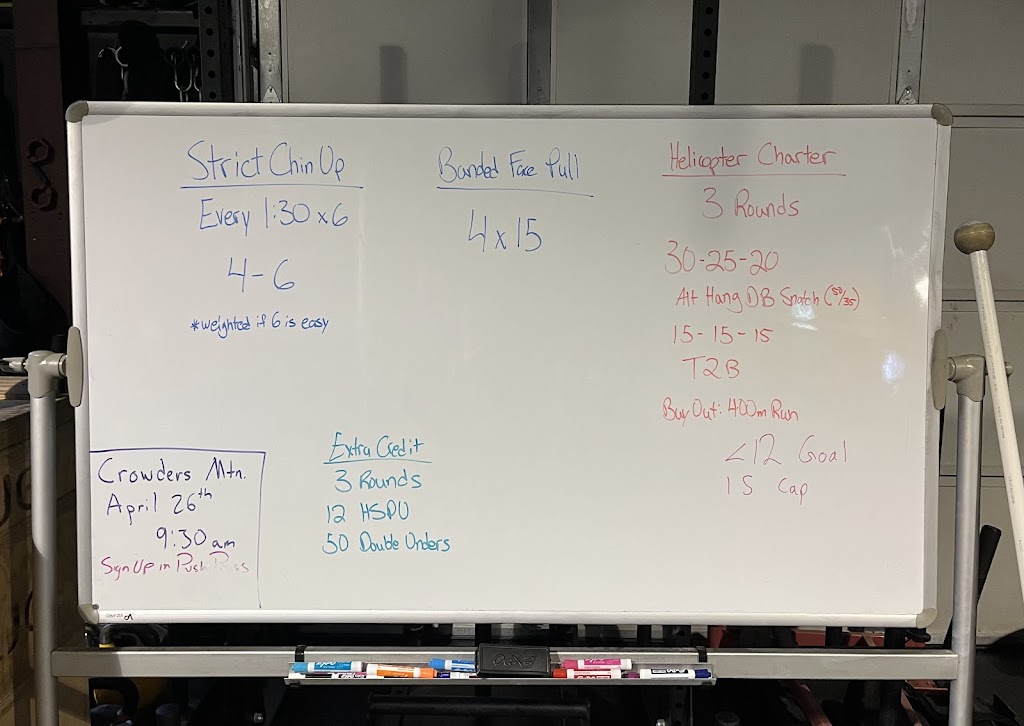 Strict Chin Up
Every 1:30 x 6
4-6
*weighted if 6 is easy
Banded Face Pull
4 x 15
Helicopter Charter
3 Rounds
30-25-20
Alt Hang DB Snatch (50/35)
15-15-15
T2B
Buy Out: 400m Run
<12 Goal
15 Cap
Extra Credit
3 Rounds
12 HSPU
50 Double Unders
Crowders Mtn.
April 26th
9:30 am
Sign Up in Push Press
EXPO